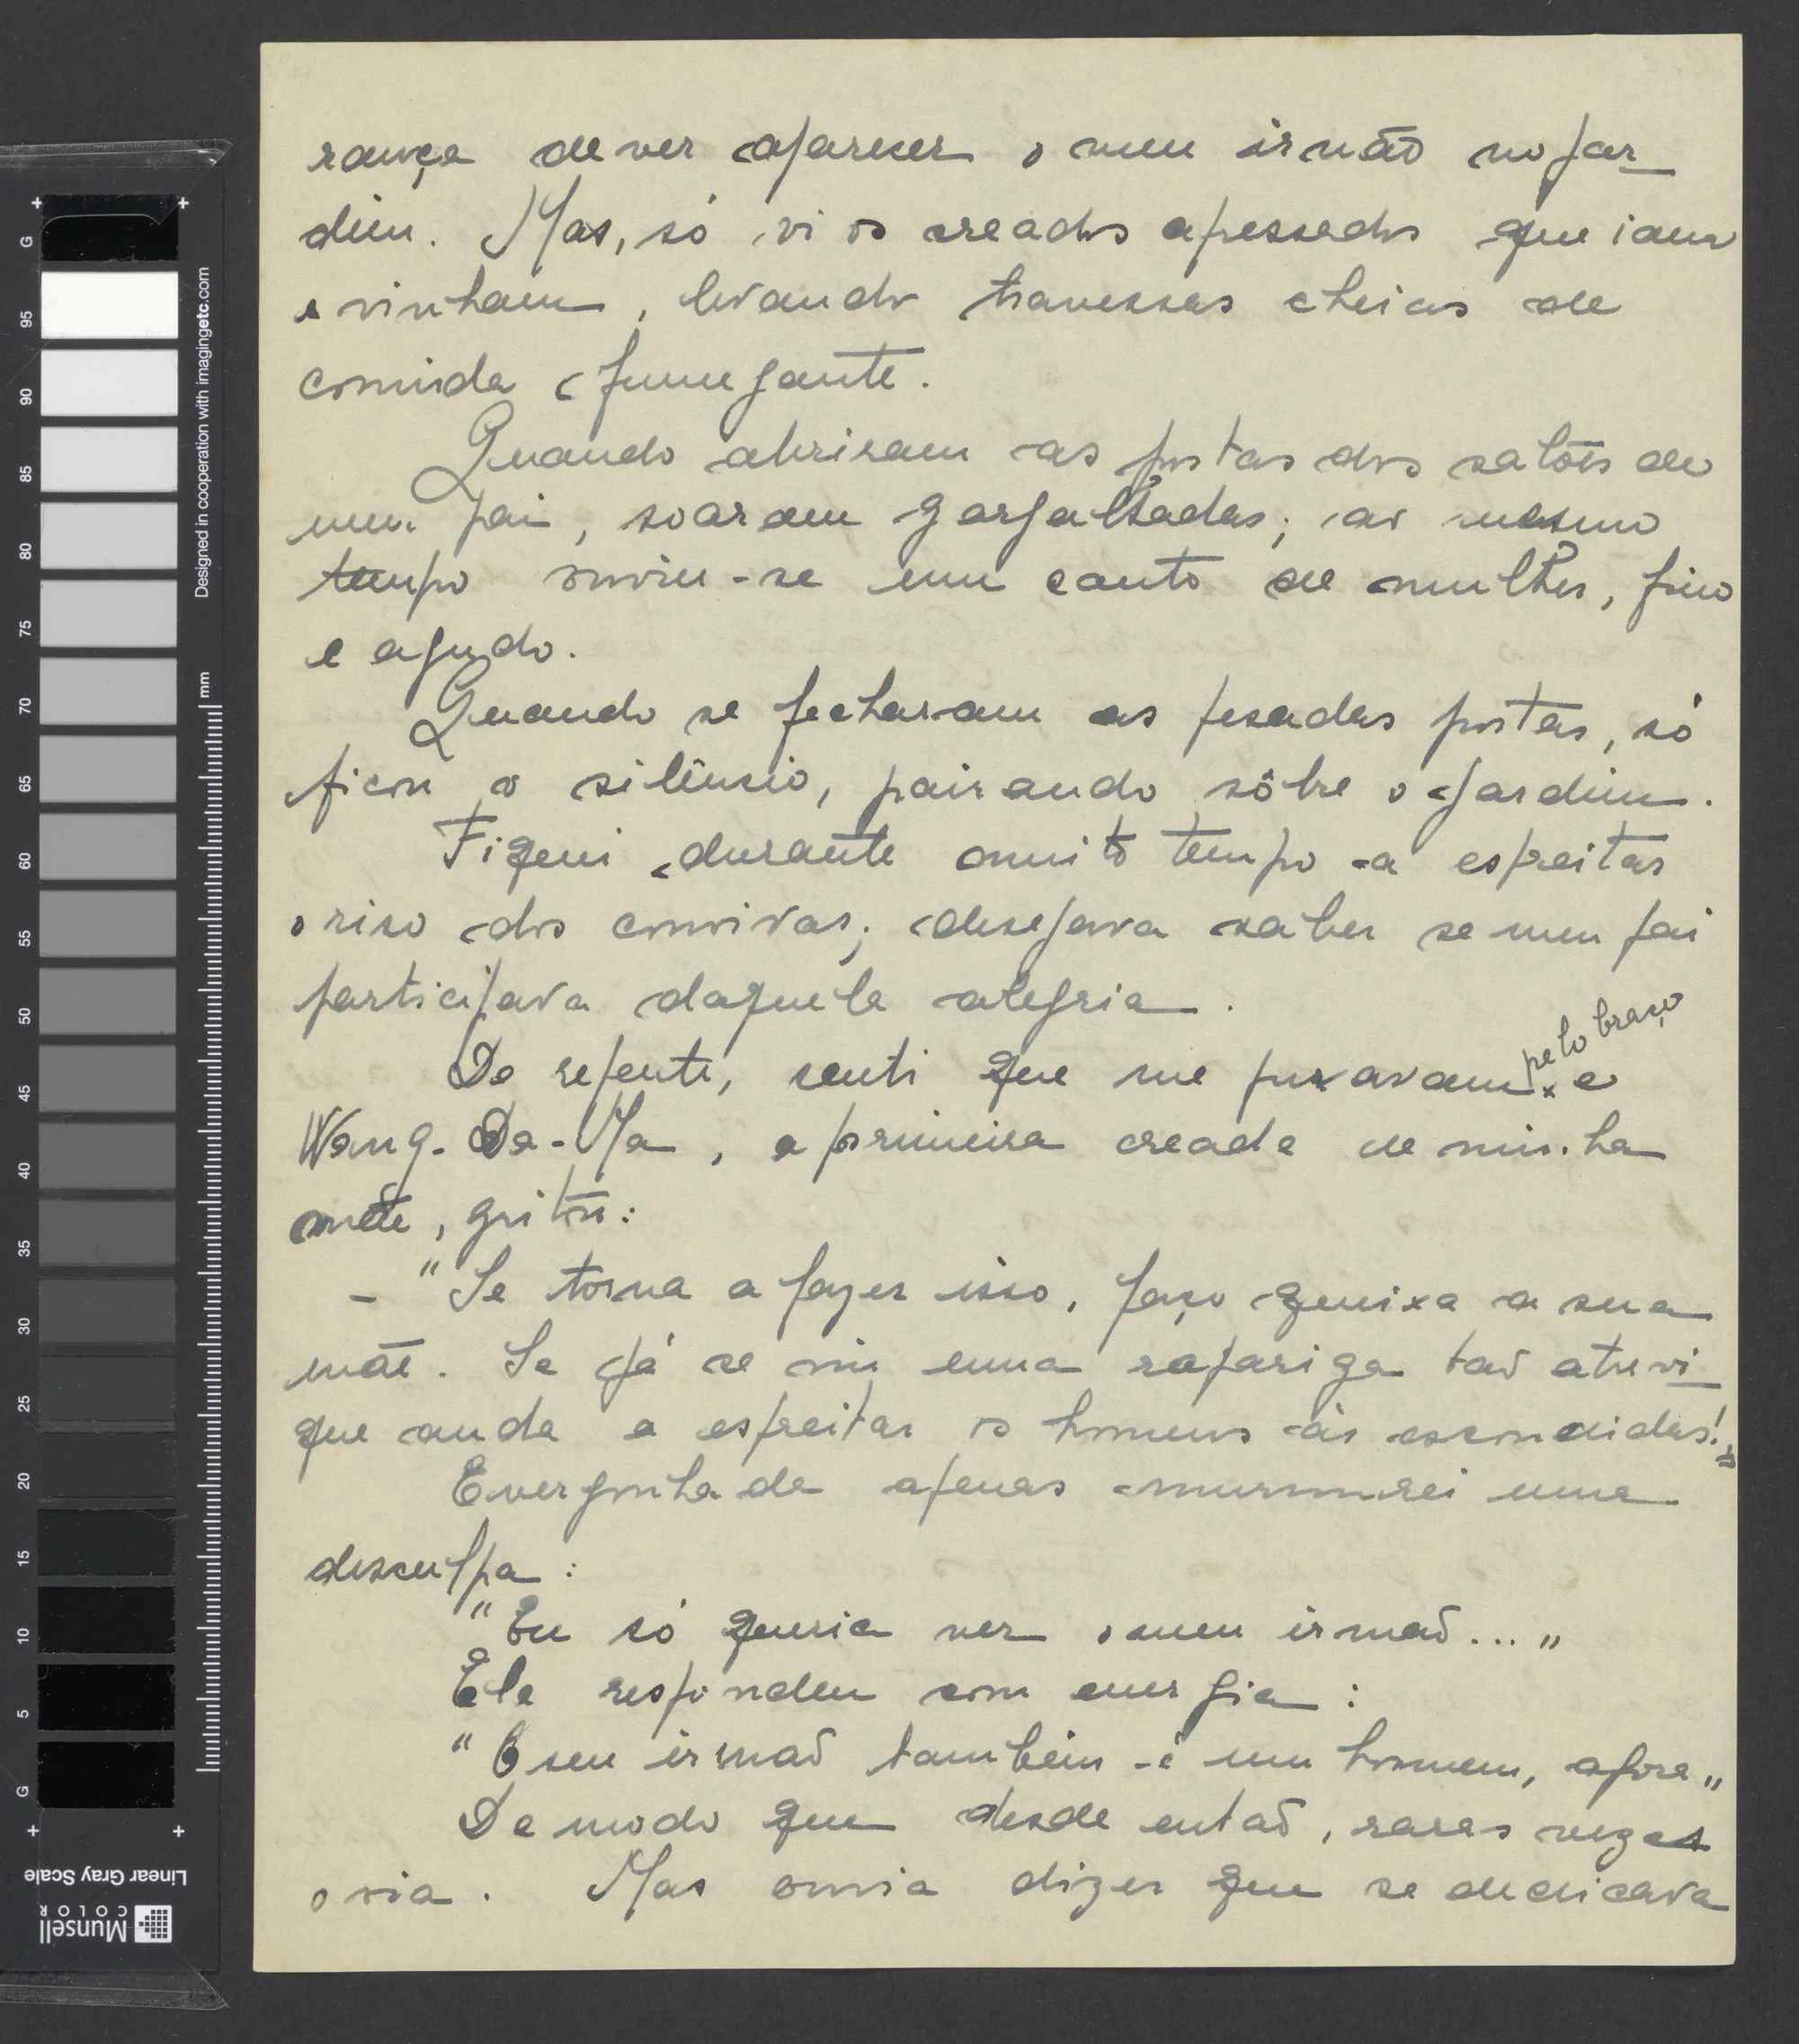 rança de ver aparecer o meu irmão no jar-
dim. Mas, só vi os creados apressados que iam
e vinham, levando travessas cheias de
comida fumegante.
Quando abriram as portas dos salões de
meu pai, soaram gargalhadas; ao mesmo
tempo ouviu-se um canto de mulher, fino
e agudo.
Quando se fecharam as pesadas portas, só
ficou o silêncio, pairando sôbre o jardim.
Fiquei durante muito tempo a espreitar
o riso dos convivas; desejava saber se meu pai
participava daquela alegria.
pelo braço
De repente, senti que me puxavam x e
Wang-Da-Ma, a primeira creada de minha
mãe, gritou:
- "Se torna a fazer isso, faço queixa a sua
mãe. Se já se viu uma rapariga tão atrevi-
que anda a espreitar os homens às escondidas!"
Envergonhada apenas murmurei uma
desculpa:
"Eu só queria ver o meu irmão..."
Ela respondeu com energia:
"O seu irmão também é um homem, agora"
De modo que desde então, raras vezes
o via. Mas ouvia dizer que se dedicava
G
95
90
85
80
75
70
65
60
55
50
45
40
35
30
25
20
15
10
5
G
mm
Designed in cooperation with imagingetc.com
Linear Gray Scale
Munsell
COLOR